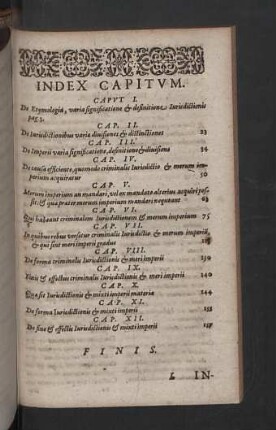 INDEX CAPITVM.
CAPVT I.
De Etymologia, varia significatione & definitione Iurisdictionis
pag. 1.
CAP. II.
De Iurisdictionibus varia divisiones & distinctiones 23
CAP. III.
De Imperii varia significatione, definitione & divisione 34
CAP. IV.
De causa efficiente, quomodo criminalis Iurisdictio & merum im-
perium acquiratur 50
CAP. V.
Merum imperium an mandari, vel an mandato alterius acquiri pos-
sit: & quod praeter merum imperium mandari nequeant 63
CAP. VI.
Qui habeant criminalem Iurisdictionem & merum imperium 75
CAP. VII.
In quibus rebus versetur criminalis Iurisdictio & merum imperium,
& qui sint meri imperii gradus
CAP. VIII.
De forma criminalis Iurisdictionis & meri imperii 139
CAP. IX.
Finis & effectus criminalis Iurisdictionis & meri imperii 140
CAP. X.
Quae sit Iurisdictionis & mixti imperii materia 144
CAP. XI.
De forma Iurisdictionis & mixti imperii
CAP. XII.
De fine & effectu Iurisdictionis & mixti imperii
FINIS.
IN-